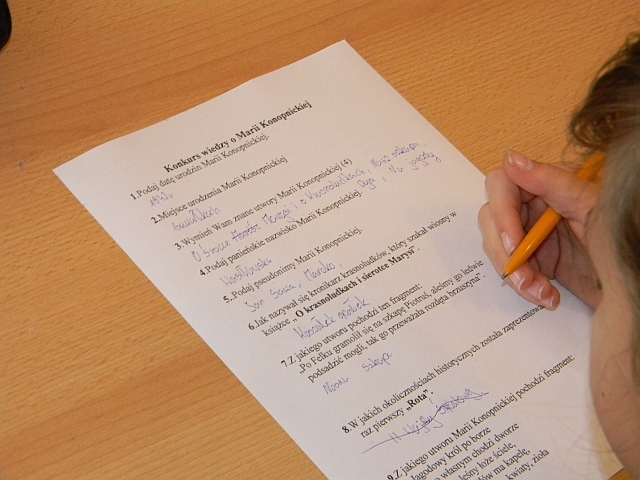 Konkurs wiedzy o Marii Konopnickiej
1.Podaj datę urodzin Marii Konopnickiej.
1842
2.Miejsce urodzenia Marii Konopnickiej
Suwałkach
3.Wymień Wam znane utwory Marii Konopnickiej (4)
O Krasnoludkach, Nasza szkapa
4.Podaj panieńskie nazwisko Marii Konopnickiej. Na jagody
Wasiłowska
5..Podaj pseudonimy Marii Konopnickiej.
Jan Sawa, Marko,
6.Jak nazywał się kronikarz krasnoludków, który szukał wiosny w
książce „O krasnoludkach i sierotce Marysi".
Koszałek opałek
7.Z jakiego utworu pochodzi ten fragment:
„Po Felku gramolił się na szkapę Piotruś, aleśmy go ledwie
podsadzić mogli, tak go przeważała rozdęta brzuszyna".
Nasza szkapa
8.W jakich okolicznościach historycznych została zaprezentowana
raz pierwszy „Rota".
9.Z jakiego utworu Marii Konopnickiej pochodzi fragment:
agodowy król po borze
a własnym chodzi dworze
leśny łoże ściele,
ów ma kapelę,
kwiaty, zioła